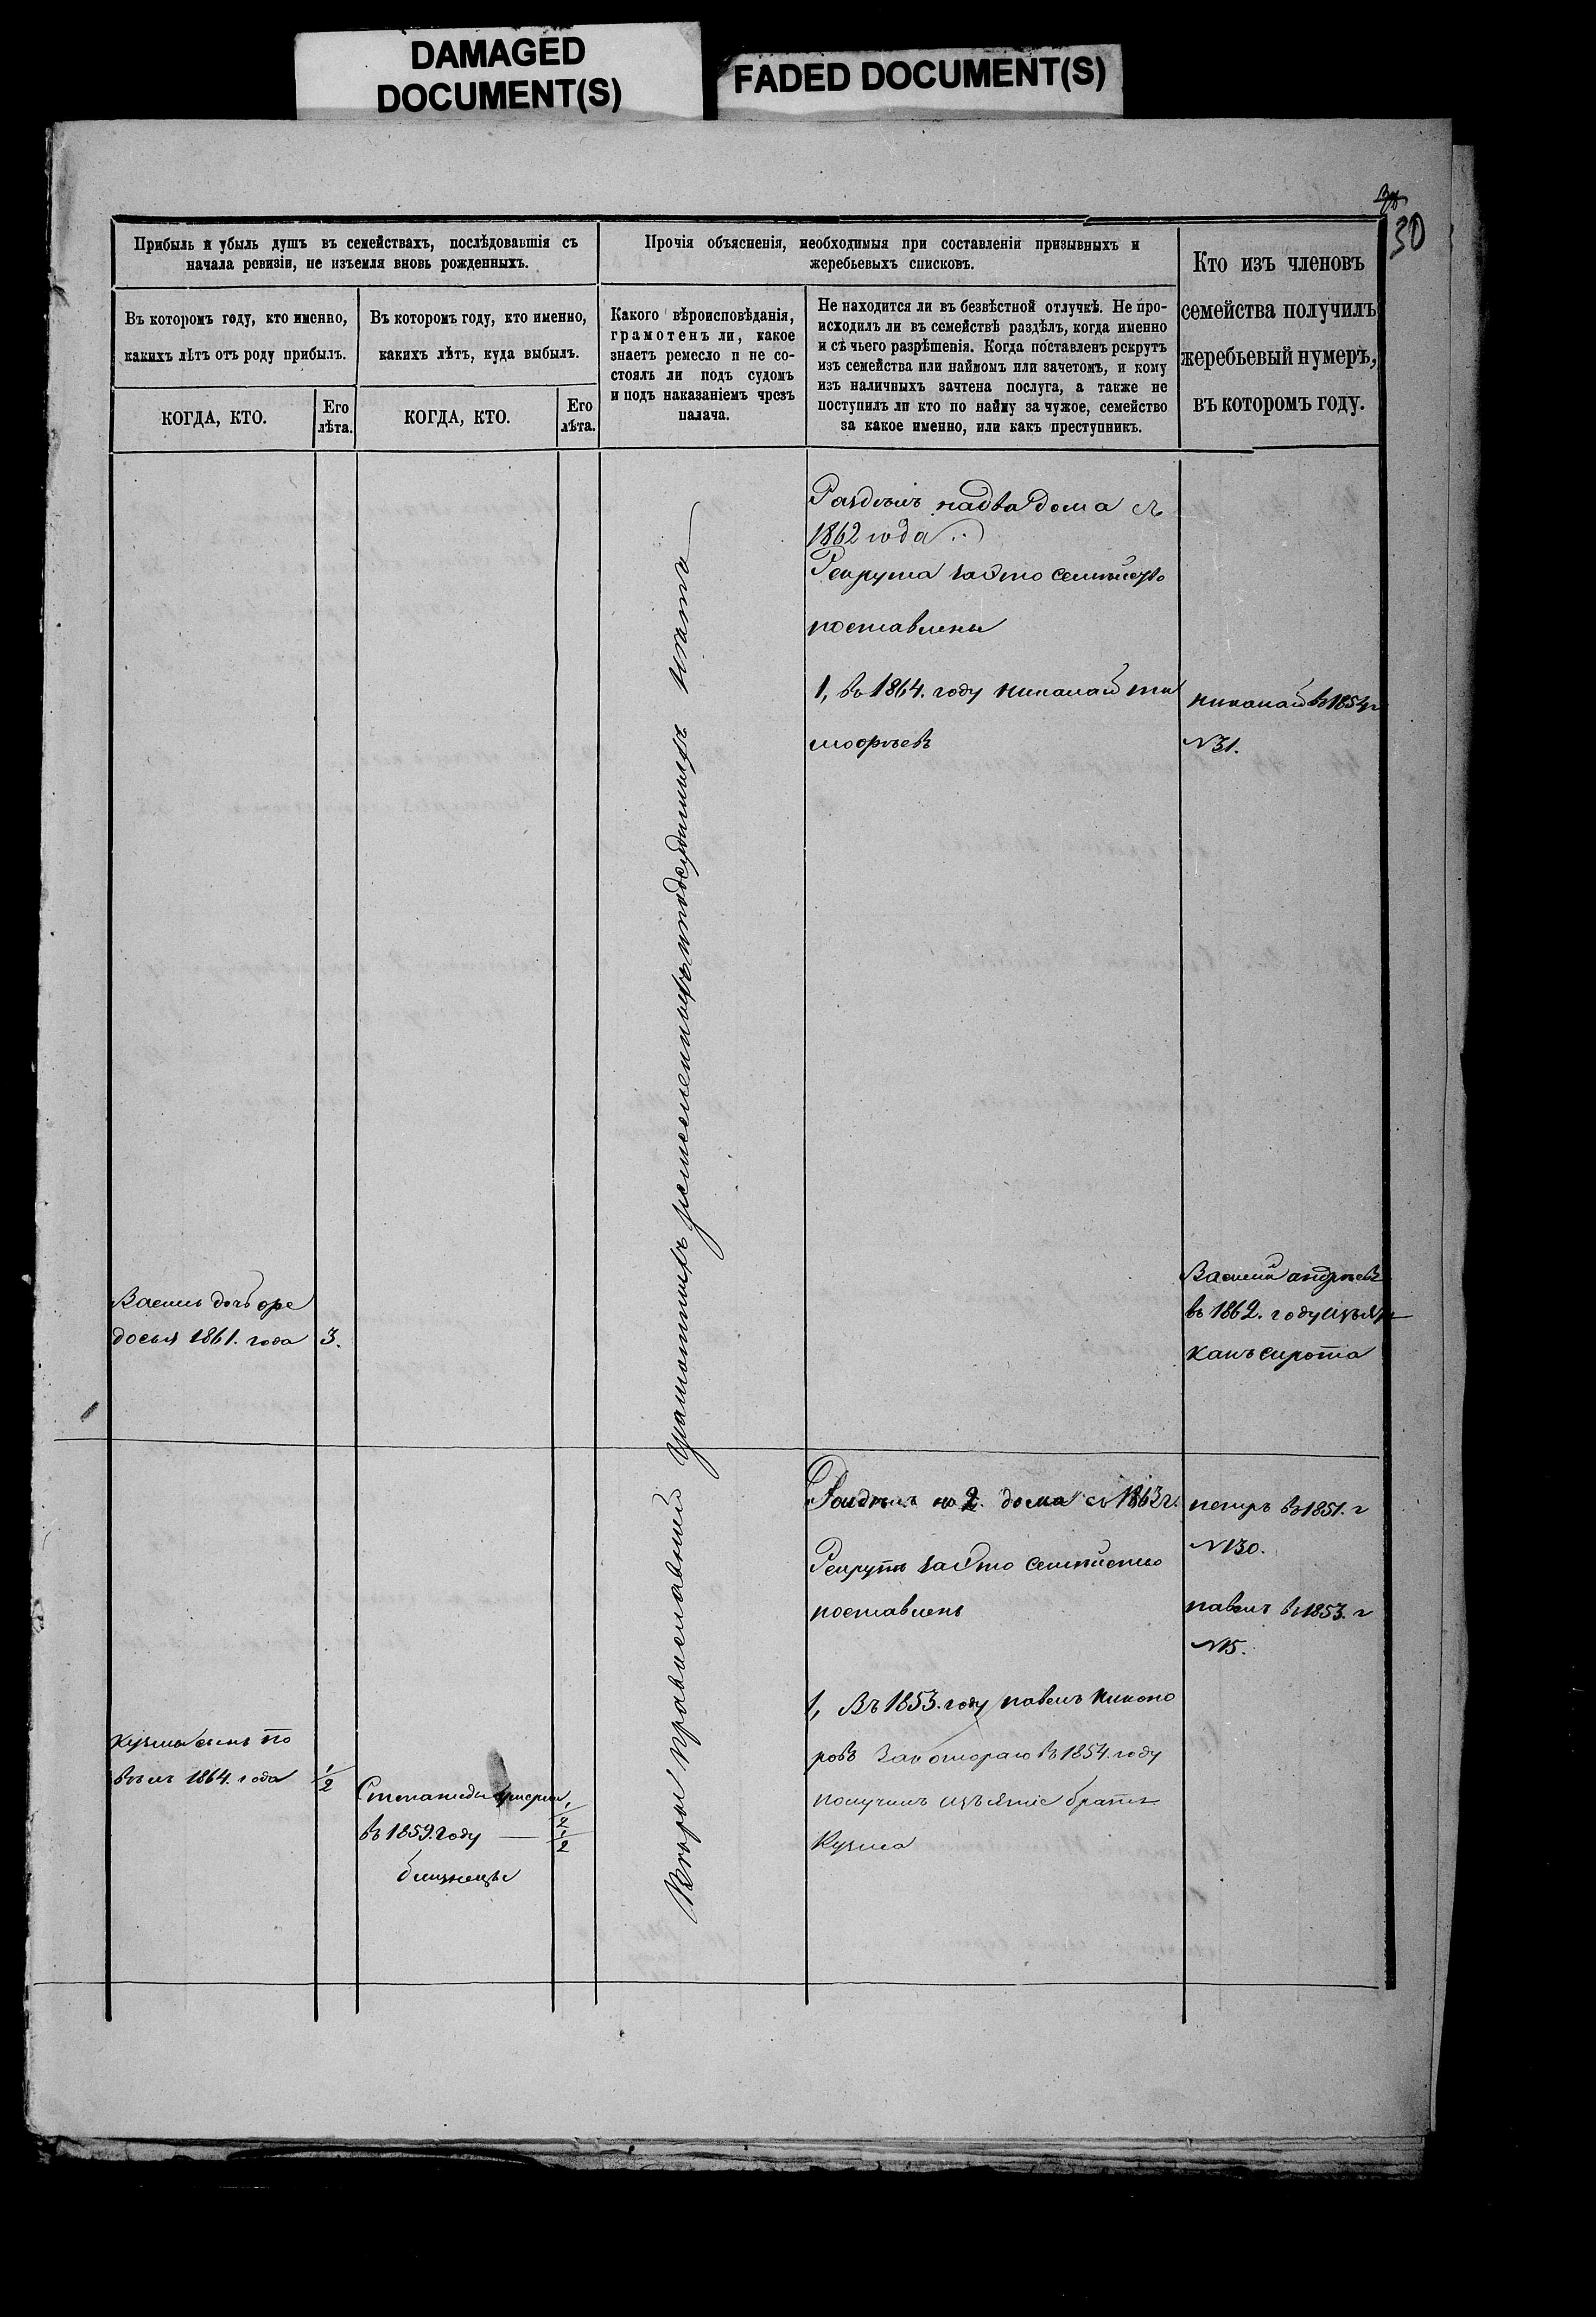 DAMAGED
DOCUMENT(S)
FADED DOCUMENT(S)
30
Прибыль и убыль душъ въ семействахъ, послѣдовавшія съ
начала ревизіи, не изъемля вновь рожденныхъ.
Прочія объясненія, необходимыя при составленіи призывныхъ и
жеребьевыхъ списковъ.
Кто изъ членовъ
семейства получилъ
жеребьевый нумеръ,
въ которомъ году.
Въ которомъ году, кто именно,
какихъ лѣтъ отъ роду прибылъ.
Въ которомъ году, кто именно,
какихъ лѣтъ, куда выбылъ.
Какого вѣроисповѣданія,
грамотенъ ли, какое
знаетъ ремесло и не со-
стоялъ ли подъ судомъ
и подъ наказаніемъ чрезъ
палача.
Не находится ли въ безвѣстной отлучкѣ. Не про-
исходилъ ли въ семействѣ раздѣлъ, когда именно
и съ чьего разрѣшенія. Когда поставленъ рекрутъ
изъ семейства или наймомъ или зачетомъ, и кому
изъ наличныхъ зачтена послуга, а также не
поступилъ ли кто по найму за чужое, семейство
за какое именно, или какъ преступникъ.
КОГДА, КТО.
Его
лѣта.
КОГДА, КТО.
Его
лѣта.
Раздѣлъ надва дома съ
1862 года
Рекрута заэто семѣйство
поставлены
1, въ 1864. году николай ти
мофѣевъ
николай въ 1854 г
№31.
Вѣры православной грамотныхъ ремесленныхъ иподсудимыхъ нѣтъ
Василь дочь фе
досья 1861. года 3.
Василий андрѣевъ
въ 1862. году изъят
какъ сирота
Раздѣлъ на 2. дома съ 1863 г.
Рекрутъ заэто семѣйство
поставленъ
1, Въ 1853. году павелъ никоно
ровъ за которого въ 1854. году
получилъ изъятіе братъ
Кузма
петръ въ 1851. г
№130.
павелъ въ 1853. г
№15.
кузма сынъ па
вѣлъ 1864. года 1/2
въ 1859. году — 1/2
близнецы